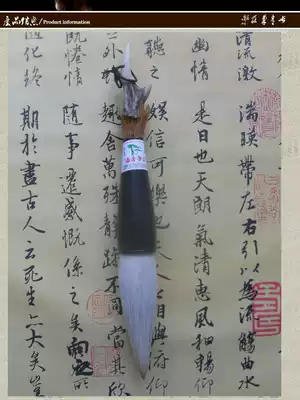 產品信息/Product information
清流激湍暎帶左右引以為流觴曲水
幽情是日也天朗氣清惠風和暢仰
聽之娛信可樂也
與俯仰
外雖趣舍萬殊靜躁不同當其欣
既惓情隨事遷感慨係之矣向之所
化終期於盡古人云死生亦大矣豈